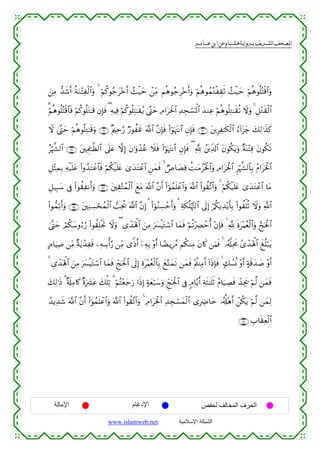 المصحف الشريف برواية هشام عن ابن عامر
وَٱقْتُلُوهُمْ حَيْثُ ثَقِفْتُمُوهُمْ وَأَخْرِجُوهُم مِّنْ حَيْثُ أَخْرَجُوكُمْ ۚ وَٱلْفِتْنَةُ أَشَدُّ مِنَ
ٱلْقَتْلِ ۚ وَلَا تُقَٰتِلُوهُمْ عِندَ ٱلْمَسْجِدِ ٱلْحَرَامِ حَتَّىٰ يُقَٰتِلُوكُمْ فِيهِ ۖ فَإِن قَٰتَلُوكُمْ فَٱقْتُلُوهُمْ ۗ
كَذَٰلِكَ جَزَآءُ ٱلْكَٰفِرِينَ فَإِنِ ٱنتَهَوْا۟ فَإِنَّ ٱللَّهَ غَفُورٌ رَّحِيمٌ وَقَٰتِلُوهُمْ حَتَّىٰ لَا
تَكُونَ فِتْنَةٌ وَيَكُونَ ٱلدِّينُ لِلَّهِ ۖ فَإِنِ ٱنتَهَوْا۟ فَلَا عُدْوَٰنَ إِلَّا عَلَى ٱلظَّٰلِمِينَ ٱلشَّهْرُ
ٱلْحَرَامُ بِٱلشَّهْرِ ٱلْحَرَامِ وَٱلْحُرُمَٰتُ قِصَاصٌ ۚ فَمَنِ ٱعْتَدَىٰ عَلَيْكُمْ فَٱعْتَدُوا۟ عَلَيْهِ بِمِثْلِ
مَا ٱعْتَدَىٰ عَلَيْكُمْ ۚ وَٱتَّقُوا۟ ٱللَّهَ وَٱعْلَمُوٓا۟ أَنَّ ٱللَّهَ مَعَ ٱلْمُتَّقِينَ وَأَنفِقُوا۟ فِى سَبِيلِ
ٱللَّهِ وَلَا تُلْقُوا۟ بِأَيْدِيكُمْ إِلَى ٱلتَّهْلُكَةِ ۛ وَأَحْسِنُوٓا۟ ۛ إِنَّ ٱللَّهَ يُحِبُّ ٱلْمُحْسِنِينَ وَأَتِمُّوا۟
ٱلْحَجَّ وَٱلْعُمْرَةَ لِلَّهِ ۚ فَإِنْ أُحْصِرْتُمْ فَمَا ٱسْتَيْسَرَ مِنَ ٱلْهَدْىِ ۖ وَلَا تَحْلِقُوا۟ رُءُوسَكُمْ حَتَّىٰ
يَبْلُغَ ٱلْهَدْىُ مَحِلَّهُۥ ۚ فَمَن كَانَ مِنكُم مَّرِيضًا أَوْ بِهِۦٓ أَذًى مِّن رَّأْسِهِۦ فَفِدْيَةٌ مِّن صِيَامٍ
أَوْ صَدَقَةٍ أَوْ نُسُكٍ ۚ فَإِذَآ أَمِنتُمْ فَمَن تَمَتَّعَ بِٱلْعُمْرَةِ إِلَى ٱلْحَجِّ فَمَا ٱسْتَيْسَرَ مِنَ ٱلْهَدْىِ ۚ
فَمَن لَّمْ يَجِدْ فَصِيَامُ ثَلَٰثَةِ أَيَّامٍ فِى ٱلْحَجِّ وَسَبْعَةٍ إِذَا رَجَعْتُمْ ۗ تِلْكَ عَشَرَةٌ كَامِلَةٌ ۗ ذَٰلِكَ
لِمَن لَّمْ يَكُنْ أَهْلُهُۥ حَاضِرِى ٱلْمَسْجِدِ ٱلْحَرَامِ ۚ وَٱتَّقُوا۟ ٱللَّهَ وَٱعْلَمُوٓا۟ أَنَّ ٱللَّهَ شَدِيدُ
ٱلْعِقَابِ
الحرف المخالف لحفص الإدغام الإمالة
الشبكة الإسلامية www.islamweb.net